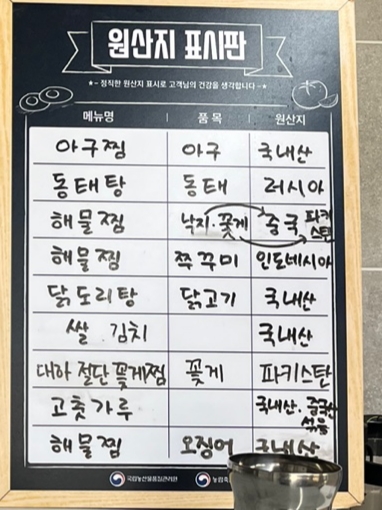 원산지 표시판
정직한 원산지 표시로 고객님의 건강을 생각합니다
메뉴명 품목 원산지
아구찜 아구 국내산
동태탕 동태 러시아
해물찜 낙지.꽃게 중국 파키스탄
해물찜 쭈꾸미 인도네시아
닭도리탕 닭고기 국내산
쌀.김치 국내산
대하 절단 꽃게찜 꽃게 파키스탄
고춧가루 국내산.중국산 섞음
해물찜 오징어 국내산
국립농산물품질관리원